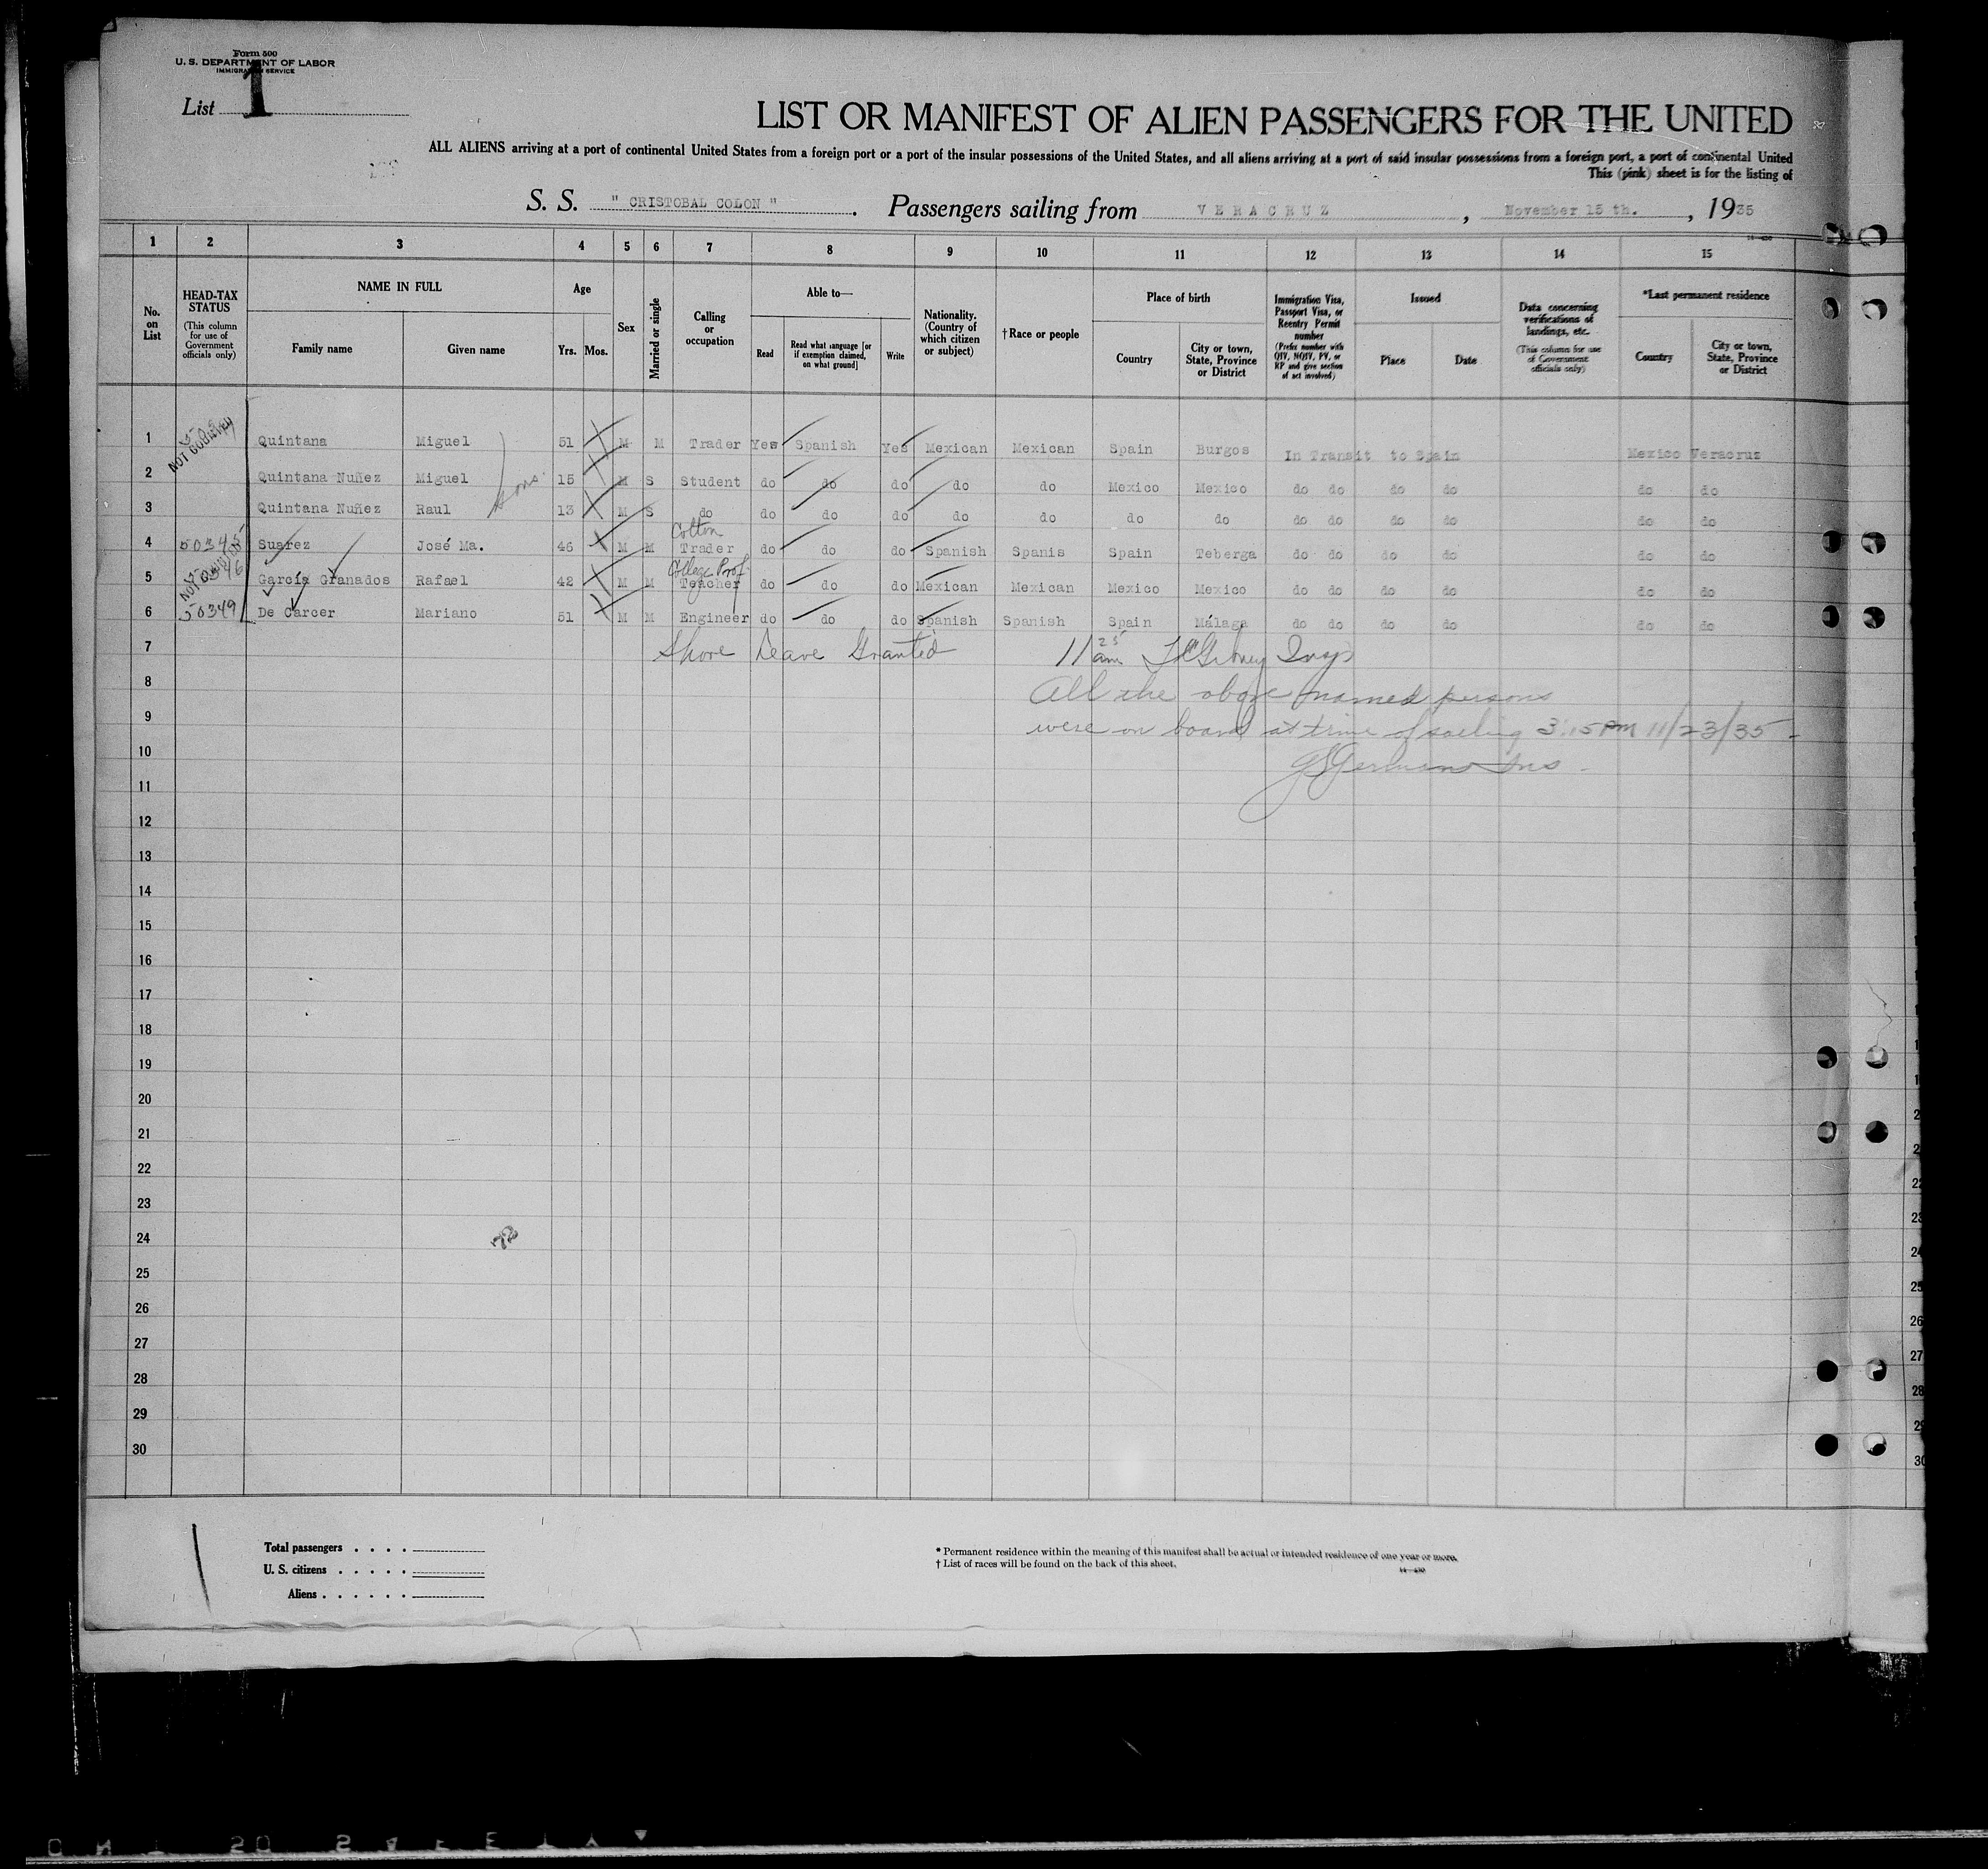 Form 500
U. S. DEPARTMENT OF LABOR
IMMIGRATION SERVICE
List 1
LIST OR MANIFEST OF ALIEN PASSENGERS FOR THE UNITED
ALL ALIENS arriving at a port of continental United States from a foreign port or a port of the insular possessions of the United States, and all aliens arriving at a port of said insular possessions from a foreign port, a port of continental United
This (pink) sheet is for the listing of
S. S. " CRISTOBAL COLON " . Passengers sailing from VERACRUZ , November 15 th. , 1935
1 2 3 4 5 6 7 8 9 10 11 12 13 14 15
No. on List
HEAD-TAX STATUS
(This column for use of Government officials only)
NAME IN FULL
Family name
Given name
Age
Yrs. Mos.
Sex
Married or single
Calling or occupation
Able to—
Read
Read what language [or if exemption claimed, on what ground]
Write
Nationality. (Country of which citizen or subject)
† Race or people
Place of birth
Country
City or town, State, Province or District
Immigration Visa, Passport Visa, or Reentry Permit number
(Prefix number with QIV, NQIV, PV, or RP and give section of act involved)
Issued
Place
Date
Data concerning verifications of landings, etc.
(This column for use of Government officials only)
*Last permanent residence
Country
City or town, State, Province or District
1 Quintana Miguel 51 M M Trader Yes Spanish Yes Mexican Mexican Spain Burgos In Transit to Spain Mexico Veracruz
2 Quintana Nuñez Miguel sons 15 M S Student do do do do do Mexico Mexico do do do do do do
3 Quintana Nuñez Raul 13 M S do do do do do do do do do do do do do do
Cotton
4 50345 Suarez José Ma. 46 M M Trader do do do Spanish Spanis Spain Teberga do do do do do do
College Prof.
5 García Granados Rafael 42 M M Teacher do do do Mexican Mexican Mexico Mexico do do do do do do
6 50349 De Carcer Mariano 51 M M Engineer do do do Spanish Spanish Spain Málaga do do do do do do
7 Shore Leave Granted 11 25 am Insp
8 All the above named persons
9 were on board at time of sailing 3:15 PM 11/23/35 -
10 German Ins
11
12
13
14
15
16
17
18
19
20
21
22
23
24
25
26
27
28
29
30
Total passengers . . . .
U. S. citizens . . . . .
Aliens . . . . . .
* Permanent residence within the meaning of this manifest shall be actual or intended residence of one year or more.
† List of races will be found on the back of this sheet.